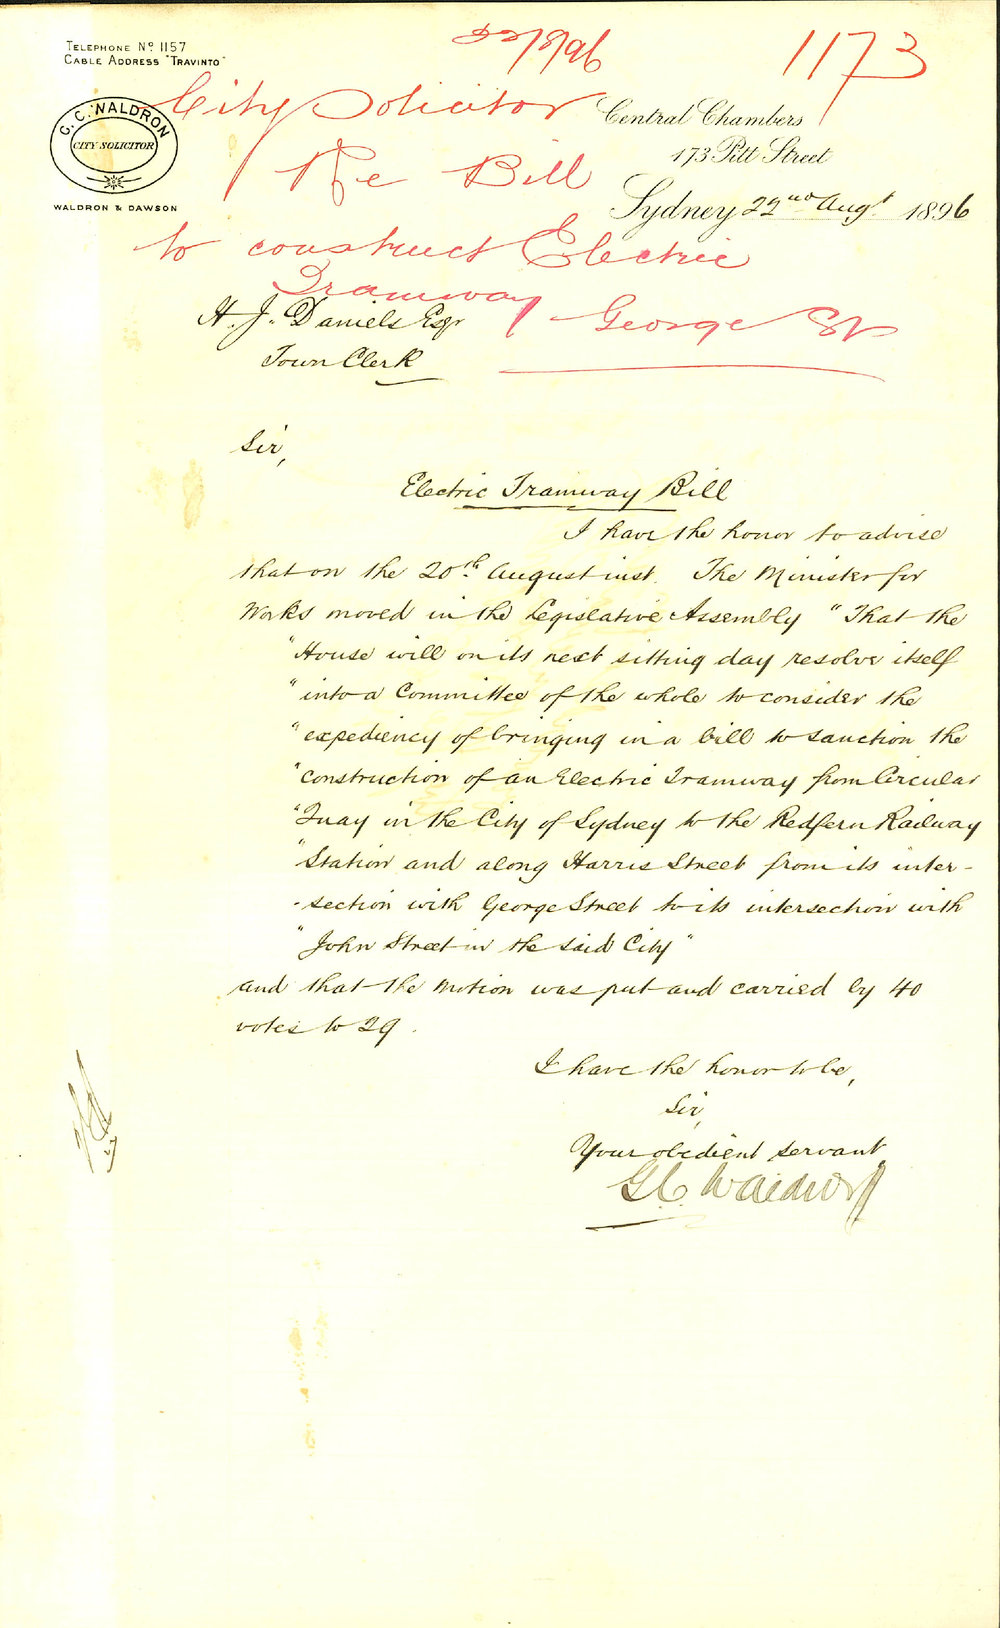 TELEPHONE No 1157
CABLE ADDRESS "TRAVINTO"
22/8/96
1173
G. C. WALDRON
CITY SOLICITOR
WALDRON & DAWSON
Central Chambers
173 Pitt Street
Sydney 22nd Augt 1896
City Solicitor
Re Bill
to construct Electric
Tramway George St
H. J. Daniels Esqr
Town Clerk
Sir,
Electric Tramway Bill
I have the honor to advise
that on the 20th August inst. The Minister for
Works moved in the Legislative Assembly "That the
"House will on its next sitting day resolve itself
"into a Committee of the whole to consider the
"expediency of bringing in a bill to sanction the
"construction of an Electric Tramway from Circular
"Quay in the City of Sydney to the Redfern Railway
"Station and along Harris Street from its inter-
-section with George Street to its intersection with
"John Street in the said City"
and that the motion was put and carried by 40
votes to 29.
I have the honor to be,
Sir,
Your obedient servant
G C Waldron